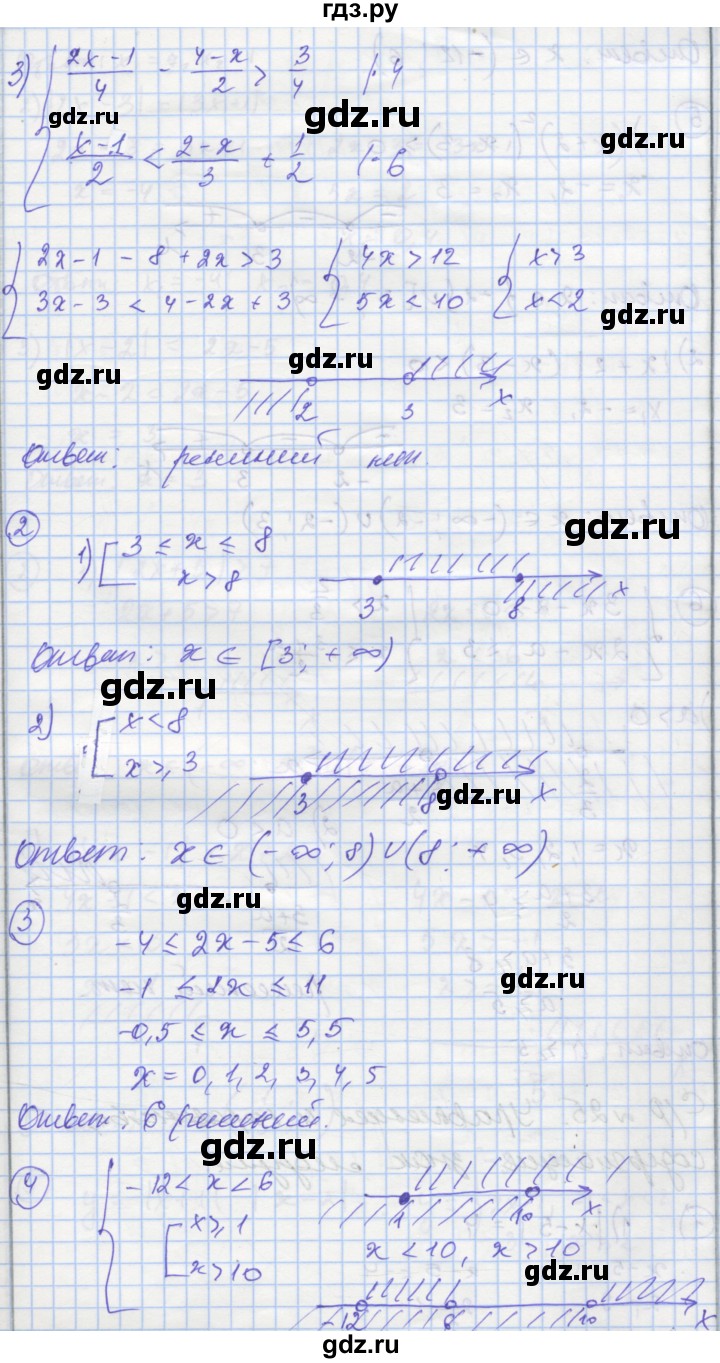 гдз.ру
3) { (2x-1)/4 - (4-x)/2 > 3/4 |·4
gdz.ru gdz.ru
(x-1)/2 < (2-x)/3 + 1/2 |·6
gdz.ru
{ 2x-1 - 8 + 2x > 3 { 4x > 12 { x > 3
3x-3 < 4-2x + 3 { 5x < 10 { x < 2
gdz.ru
gdz.ru
gdz.ru
2 3 x
Ответ: решений нет.
gdz.ru
② 1) [ 3 ≤ x ≤ 8
x > 8
3 8 x
Ответ: x ∈ [3; +∞)
gdz.ru
2) [ x < 8
x ≥ 3
3 8 x
gdz.ru
Ответ: x ∈ (-∞; 8) ∪ (8; +∞)
gdz.ru
③
-4 ≤ 2x-5 ≤ 6
-1 ≤ 2x ≤ 11
gdz.ru
-0,5 ≤ x ≤ 5,5
x = 0, 1, 2, 3, 4, 5
Ответ: 6 решений.
gdz.ru
④ { -12 < x < 6
[ x ≥ 1
x > 10
1 10 x
x < 10, x > 10
gdz.ru
-12 8 10 x
gdz.ru